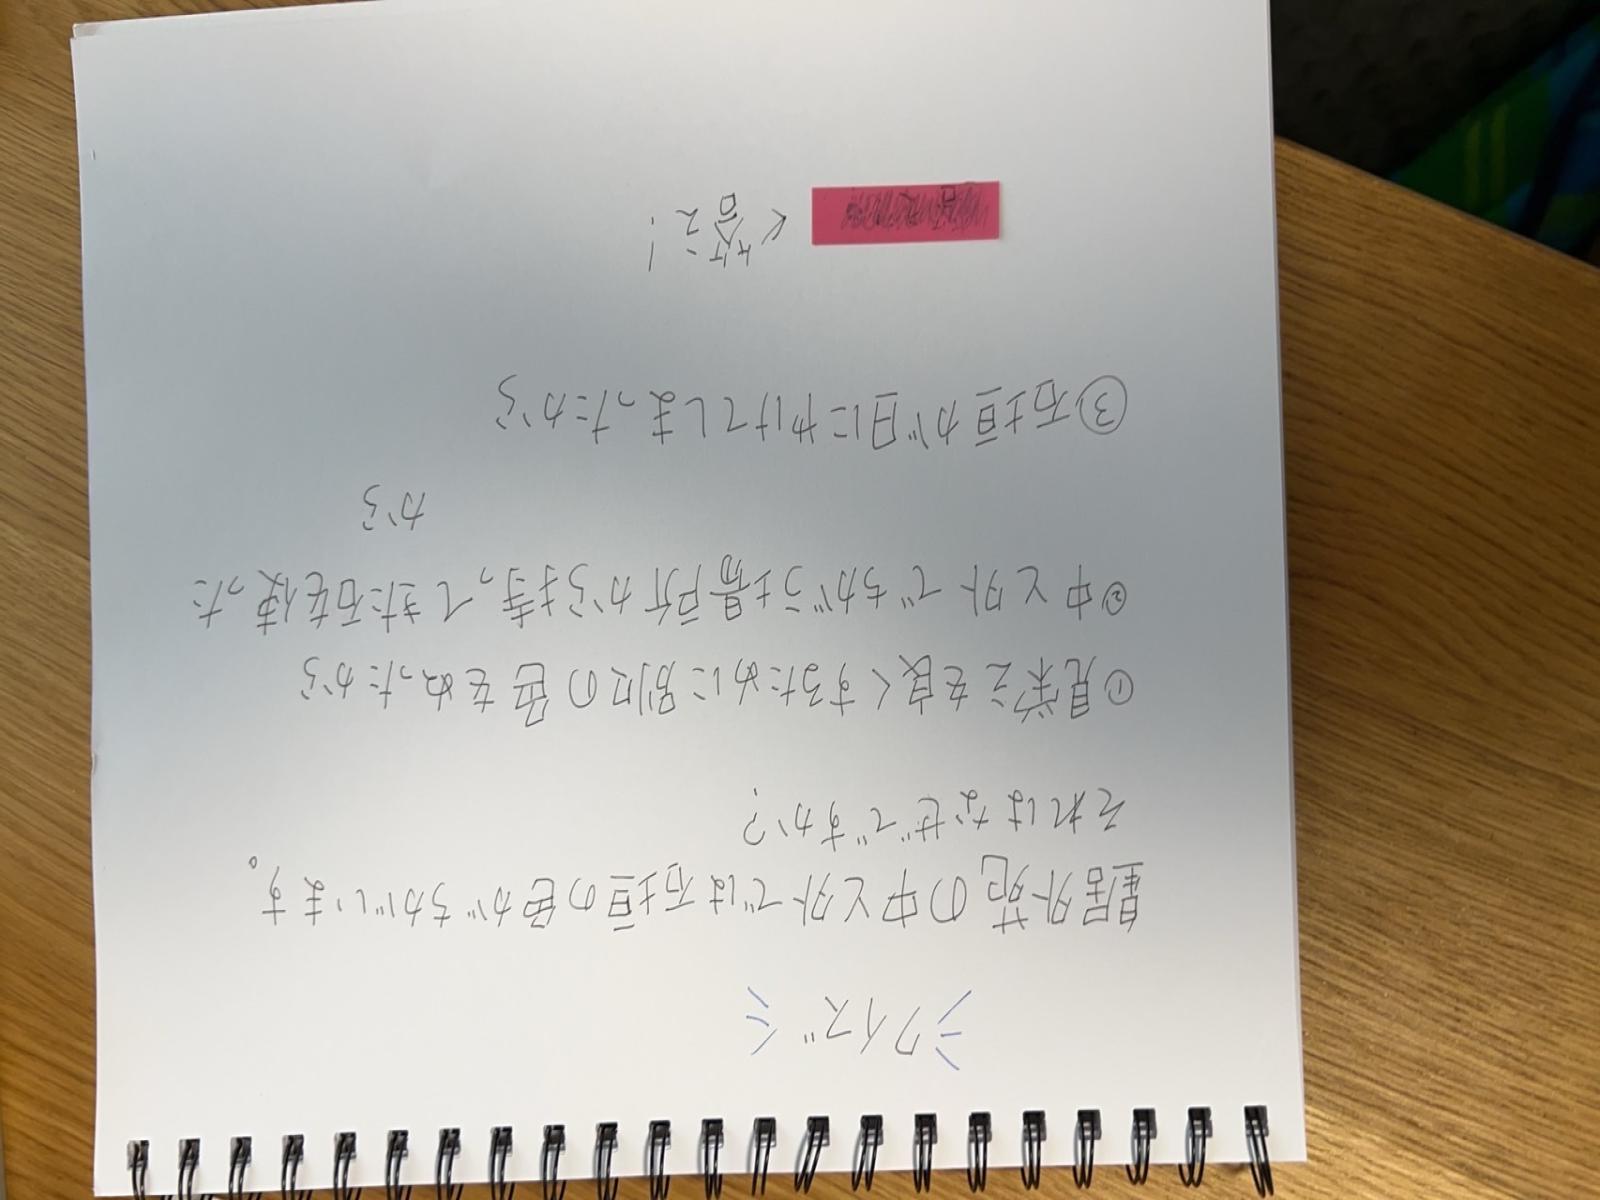 クイズ
皇居外苑の中と外では石垣の色がちがいます。
それはなぜですか?
①見栄えを良くするために別の色をぬったから
②中と外でちがう場所から持ってきた石を使った
から
③石垣が日にやけてしまったから
<答え!